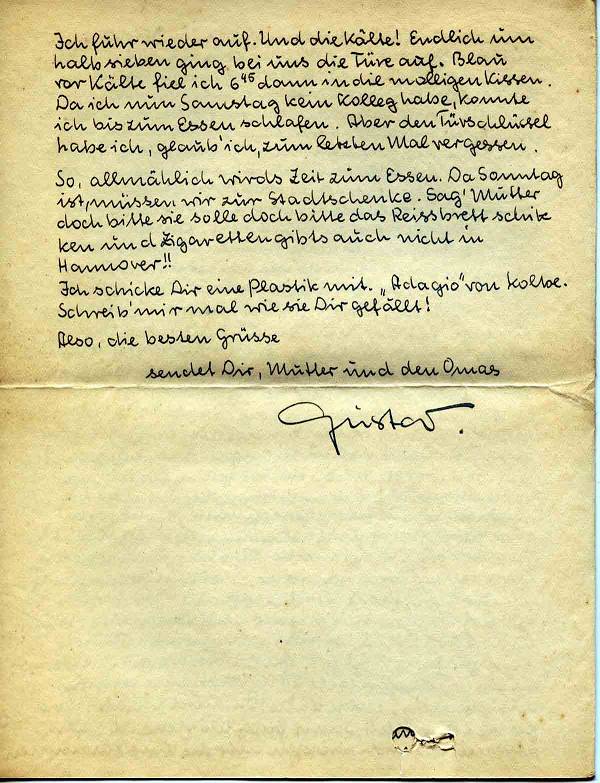 Ich fuhr wieder auf. Und die Kälte! Endlich um
halb sieben ging bei uns die Türe auf. Blau
vor Kälte fiel ich 6⁴⁵ dann in die molligen Kissen.
Da ich nun Samstag kein Kolleg habe, konnte
ich bis zum Essen schlafen. Aber den Türschlüssel
habe ich, glaub' ich, zum letzten Mal vergessen.
So, allmählich wirds Zeit zum Essen. Da Sonntag
ist, müssen wir zur Stadtschenke. Sag' Mutter
doch bitte sie solle doch bitte das Reissbrett schik
ken und Zigaretten gibts auch nicht in
Hannover!!
Ich schicke Dir eine Plastik mit. „Adagio" von Kolbe.
Schreib' mir mal wie sie Dir gefällt!
Also, die besten Grüsse
sendet Dir, Mutter und den Omas
Gustav.